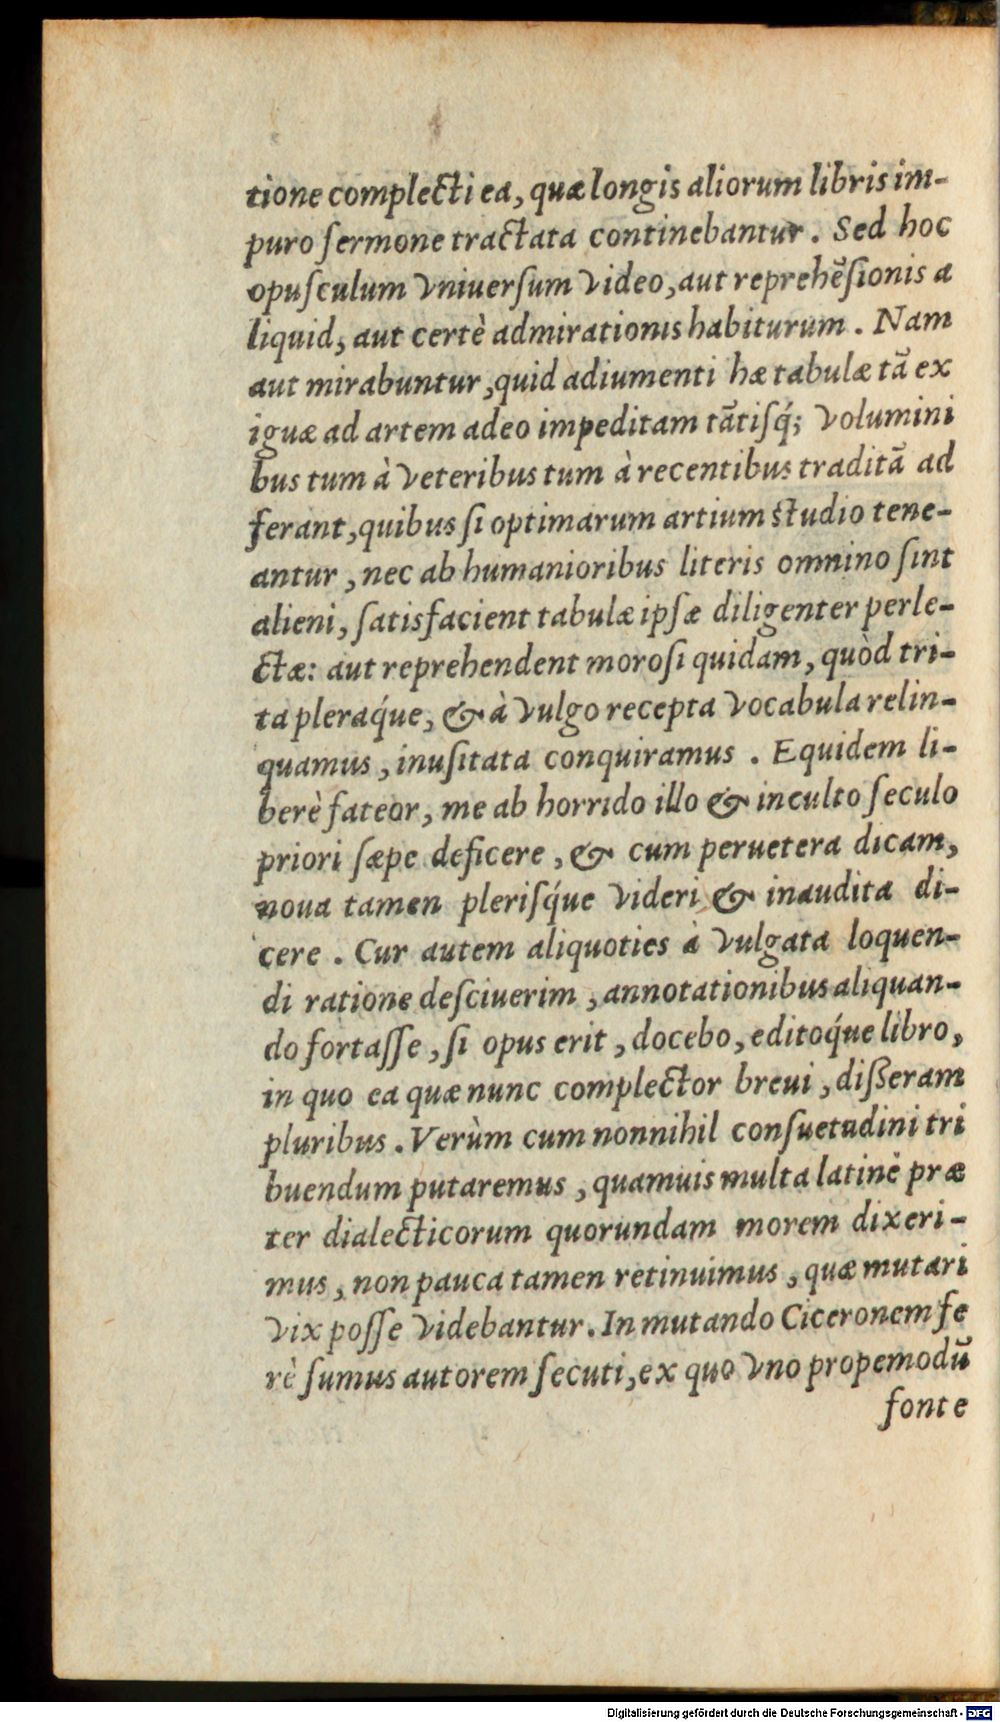 tione complecti ea, quæ longis aliorum libris im-
puro ſermone tractata continebantur. Sed hoc
opuſculum vniuerſum video, aut reprehẽſionis a
liquid, aut certè admirationis habiturum. Nam
aut mirabuntur, quid adiumenti hæ tabulæ tã ex
iguæ ad artem adeo impeditam tãtiſq́; volumini
bus tum à veteribus tum à recentibus traditã ad
ferant, quibus ſi optimarum artium ſtudio tene-
antur, nec ab humanioribus literis omnino ſint
alieni, ſatisfacient tabulæ ipſæ diligenter perle-
ctæ: aut reprehendent moroſi quidam, quòd tri-
ta pleraq́ue, & à vulgo recepta vocabula relin-
quamus, inuſitata conquiramus. Equidem li-
berè fateor, me ab horrido illo & inculto ſeculo
priori ſæpe deficere, & cum peruetera dicam,
noua tamen pleriſq́ue videri & inaudita di-
cere. Cur autem aliquoties à vulgata loquen-
di ratione deſciuerim, annotationibus aliquan-
do fortaſſe, ſi opus erit, docebo, editoq́ue libro,
in quo ea quæ nunc complector breui, dißeram
pluribus. Verùm cum nonnihil conſuetudini tri
buendum putaremus, quamuis multa latinè præ
ter dialecticorum quorundam morem dixeri-
mus, non pauca tamen retinuimus, quæ mutari
vix poſſe videbantur. In mutando Ciceronem fe
rè ſumus autorem ſecuti, ex quo vno propemodũ
fonte
Digitalisierung gefördert durch die Deutsche Forschungsgemeinschaft - DFG